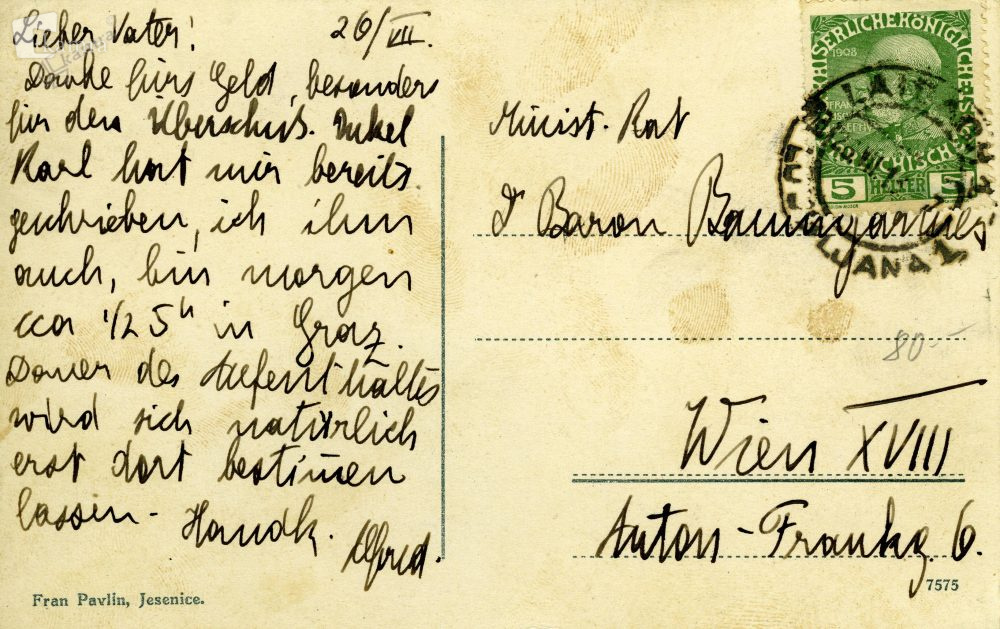 Lieber Vater! 26/VII.
Danke fürs Geld, besonders
für den Überschuß. Onkel
Karl hat mir bereits
geschrieben, ich ihm
auch, bin morgen
cca 1/2 5h in Graz.
Dauer des Aufenthaltes
wird sich natürlich
erst dort bestim̅en
lassen -
Handk.
Alfred.
Fran Pavlin, Jesenice.
KAISERLICHEKÖNIGLICHE
1908
5 HELLER 5
LAIBACH
LJUBLJANA 1
Minist. Rat
Dr Baron Baumgartner
80.-
Wien XVIII
Anton-Frankg. 6.
7575